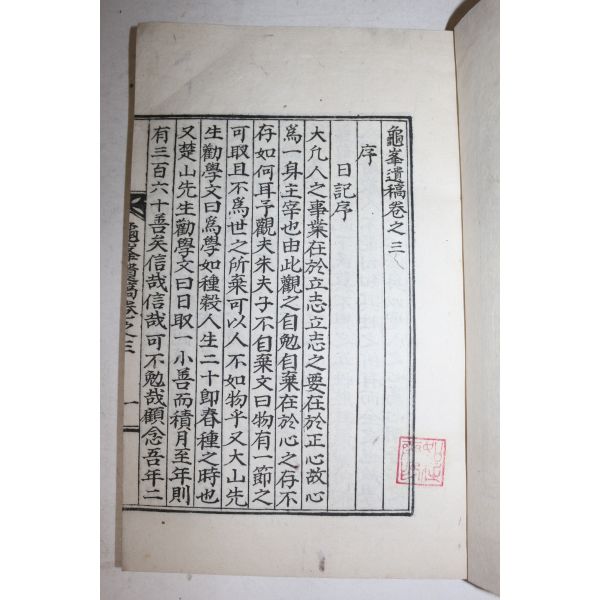 龜峯遺稿卷之三
序
日記序
大凡人之事業在於立志立志之要在於正心故心
爲一身主宰也由此觀之自勉自棄在於心之存不
存如何耳予觀夫朱夫子不自棄文曰物有一節之
可取且不爲世之所棄可以人不如物乎又大山先
生勸學文曰爲學如種穀人生二十即春種之時也
又楚山先生勸學文曰日取一小善而積月至年則
有三百六十善矣信哉信哉可不勉哉顧念吾年二
龜峯遺稿卷之三 一